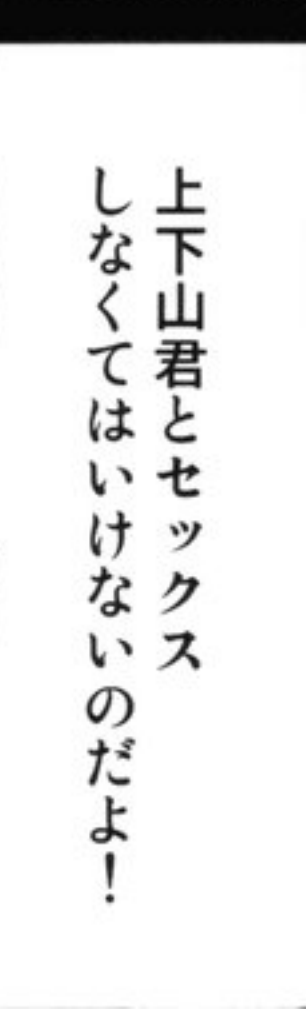 上下山君とセックス
しなくてはいけないのだよ！